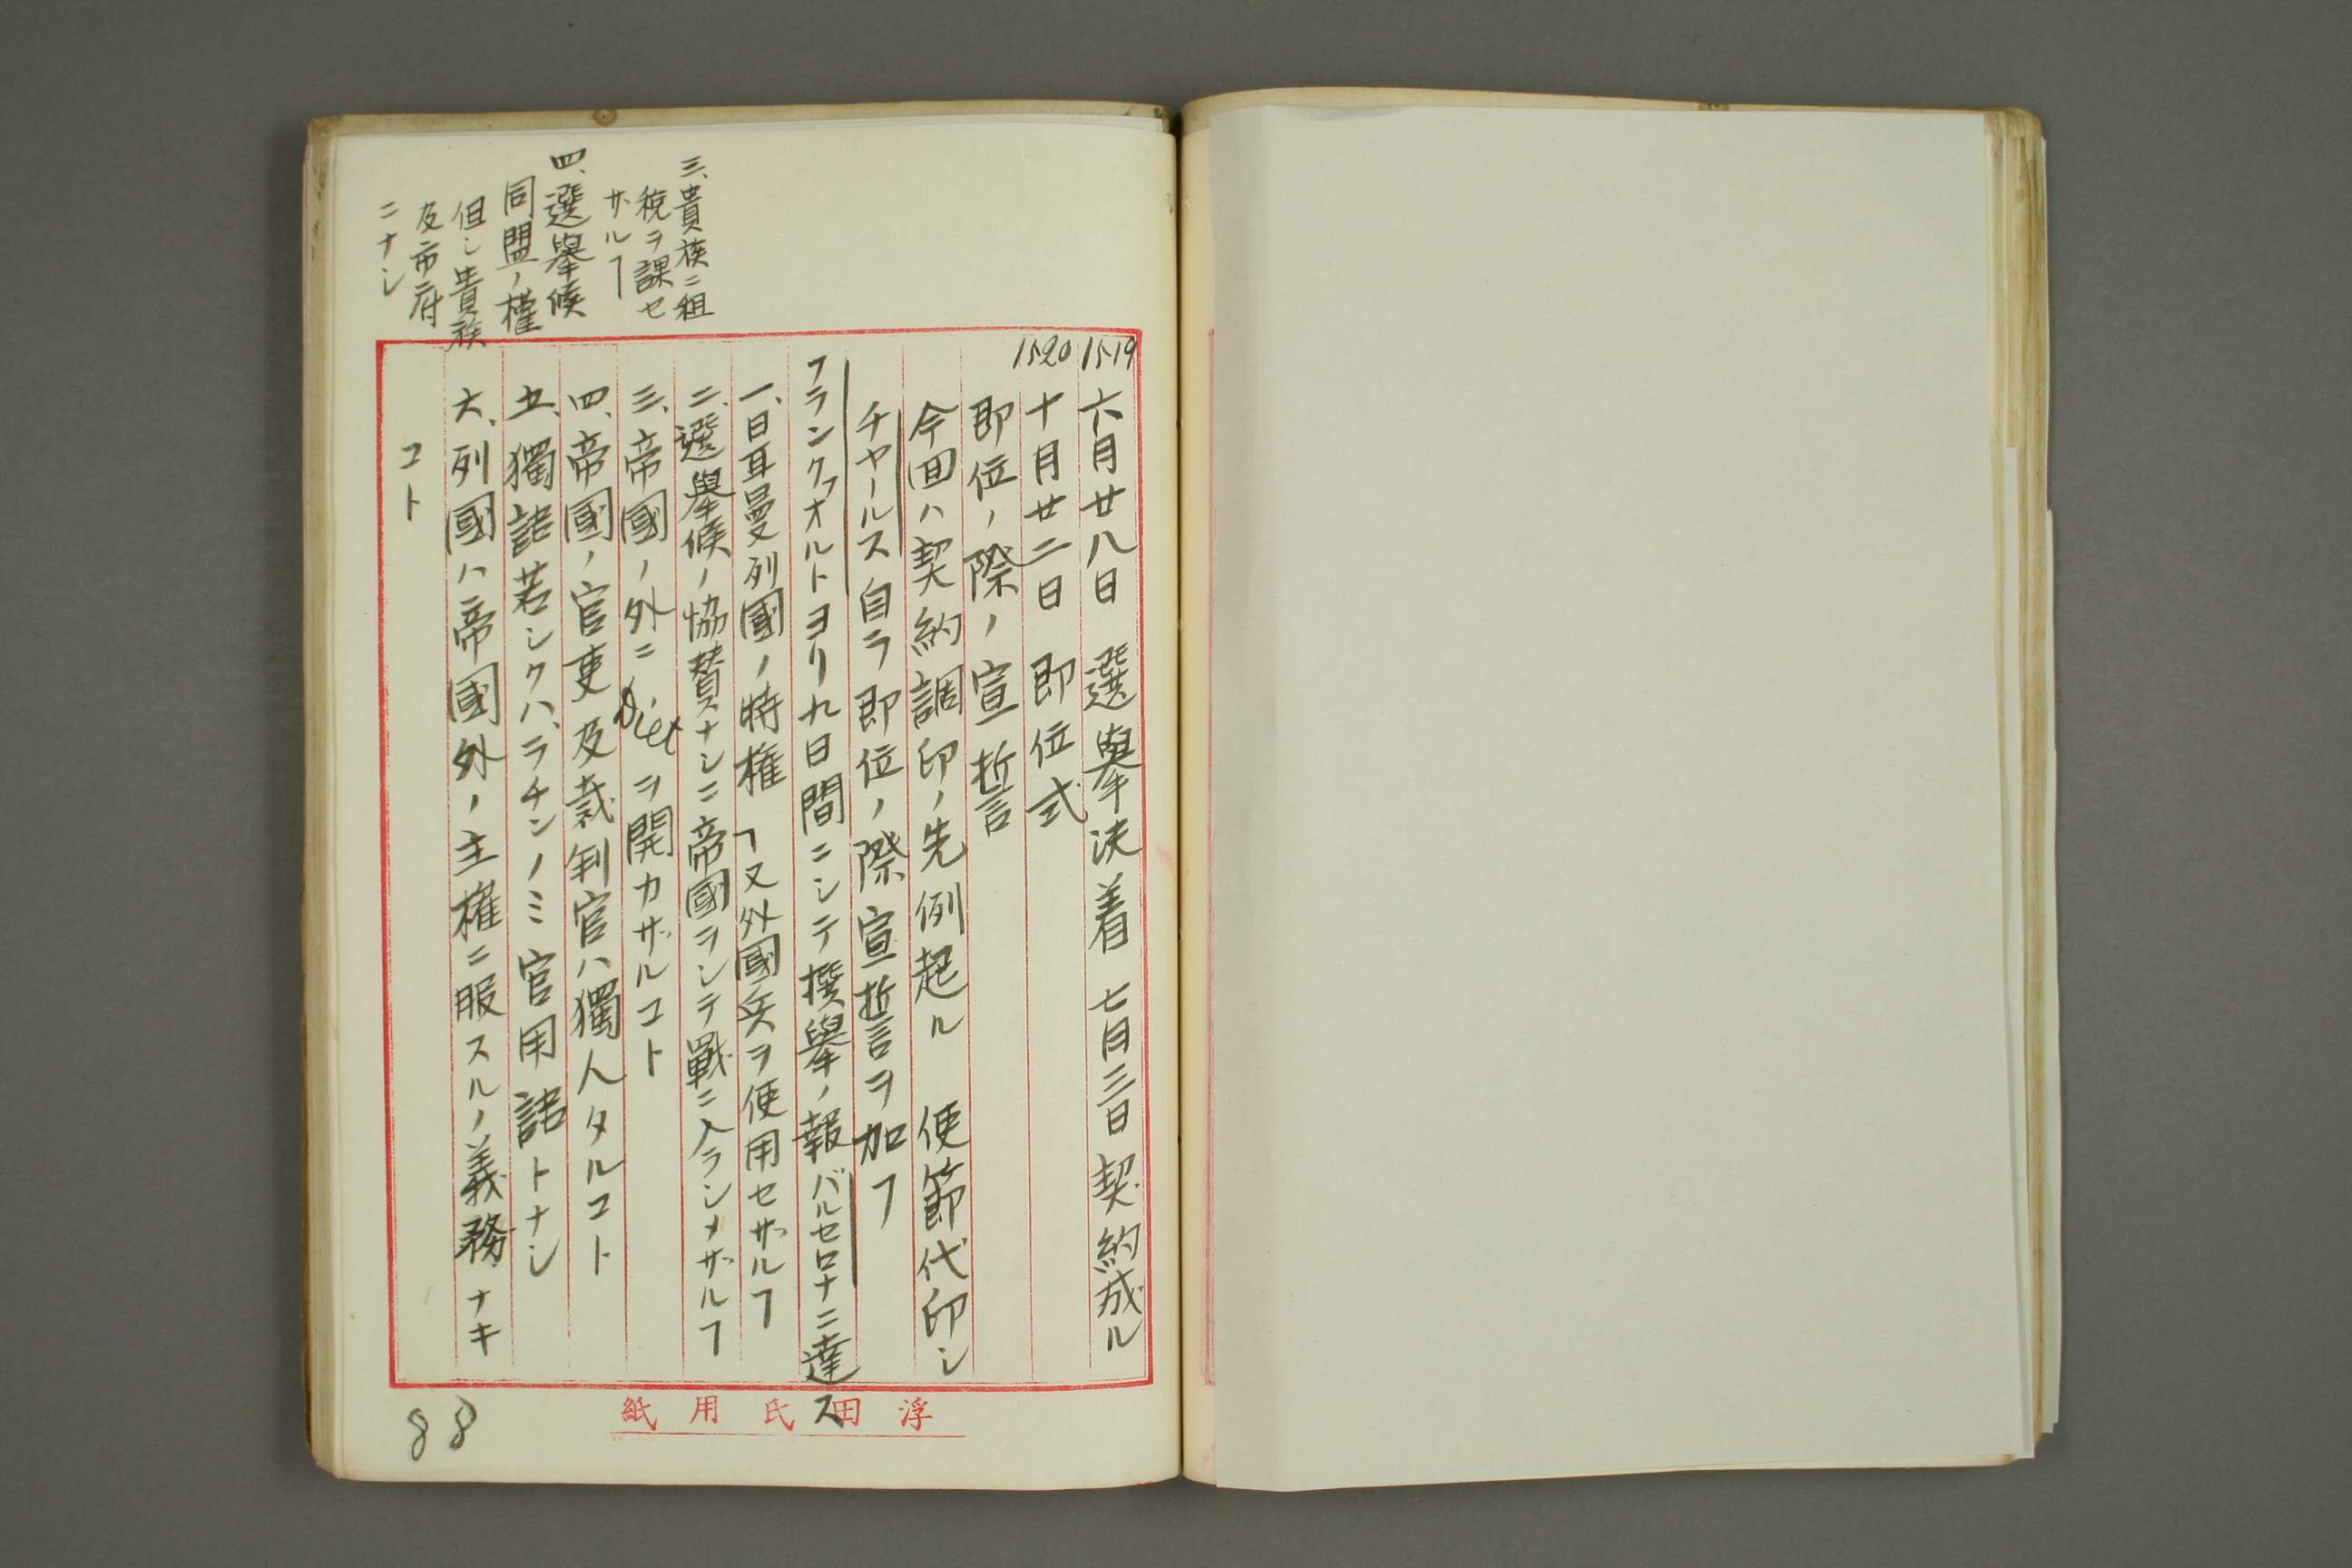 三、貴族ニ租
税ヲ課セ
ザルヿ
四、選擧候
同盟ノ權
但シ貴族
及市府
ニナシ
1519 六月廿八日 選擧決着 七月三日 契約成ル
1520 十月廿二日 即位式
即位ノ際ノ宣誓
今回ハ契約調印ノ先例起ル 使節代印シ
チャールス自ラ即位ノ際宣誓ヲ加フ
フランクフォルトヨリ九日間ニシテ撰擧ノ報バルセロナニ達ス
一、日耳曼列國ノ特権 ヿ又外國兵ヲ使用セザルヿ
二、選擧候ノ協賛ナシニ帝國ヲシテ戰ニ入ラシメザルヿ
三、帝國ノ外ニ Diet ヲ開カザルコト
四、帝國ノ官吏及裁判官ハ獨人タルコト
五、獨語若シクハ、ラチンノミ官用語トナシ
六、列國ハ帝國外ノ主權ニ服スルノ義務ナキ
コト
浮田氏用紙
88